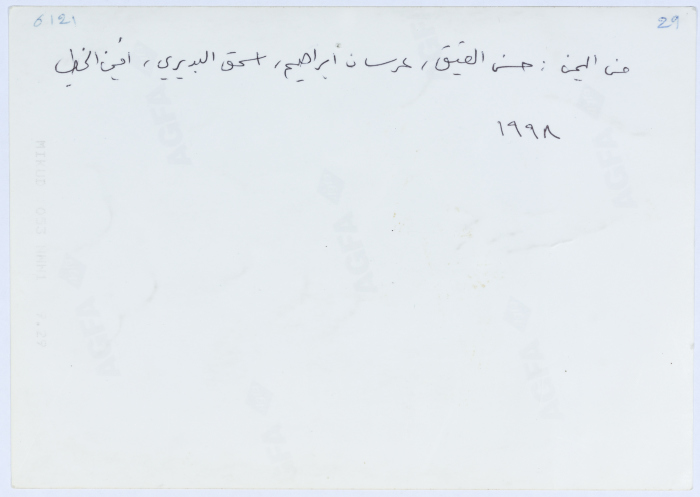 6121
29
من اليمين : حسن القيق، عرسان أبراهيم، اسحق البديري، أمين الخطيب
١٩٩٨
AGFA
AGFA
AGFA
AGFA
AGFA
AGFA
AGFA